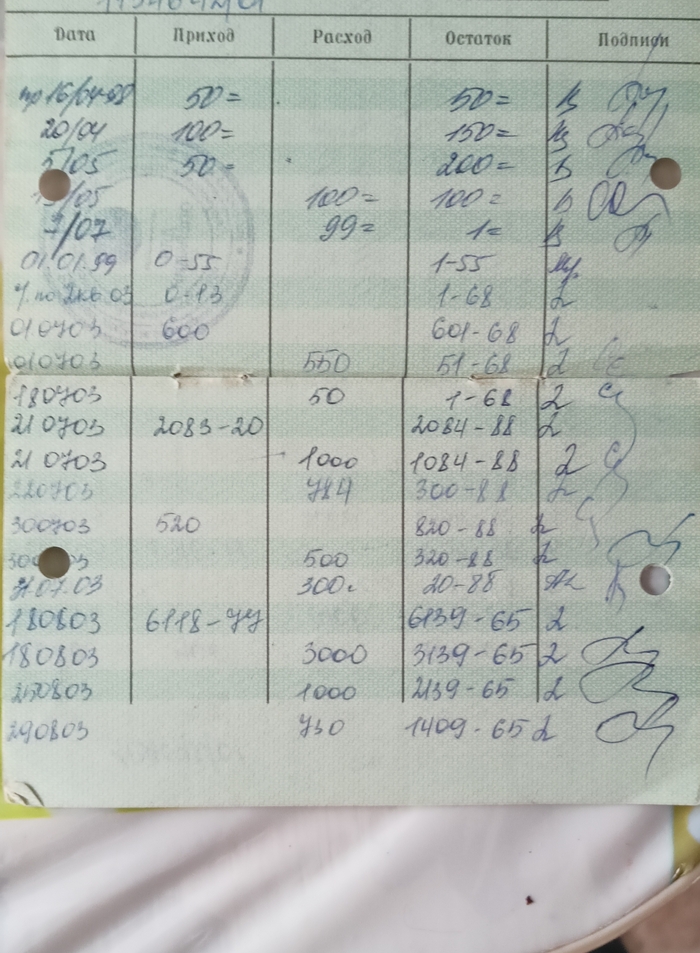 Дата Приход Расход Остаток Подписи
16/04-98 50= 50=
20/04 100= 150=
5/05 50= 200=
/05 100= 100=
7/07 99= 1=
01.01.99 0-55 1-55
03 0-13 1-68
010703 600 601-68
010703 550 51-68
180703 50 1-68
210703 2083-20 2084-88
210703 1000 1084-88
220703 784 300-88
300703 520 820-88
300 500 320-88
31.07.03 300 20-88
180803 6118-77 6139-65
180803 3000 3139-65
250803 1000 2139-65
290803 730 1409-65